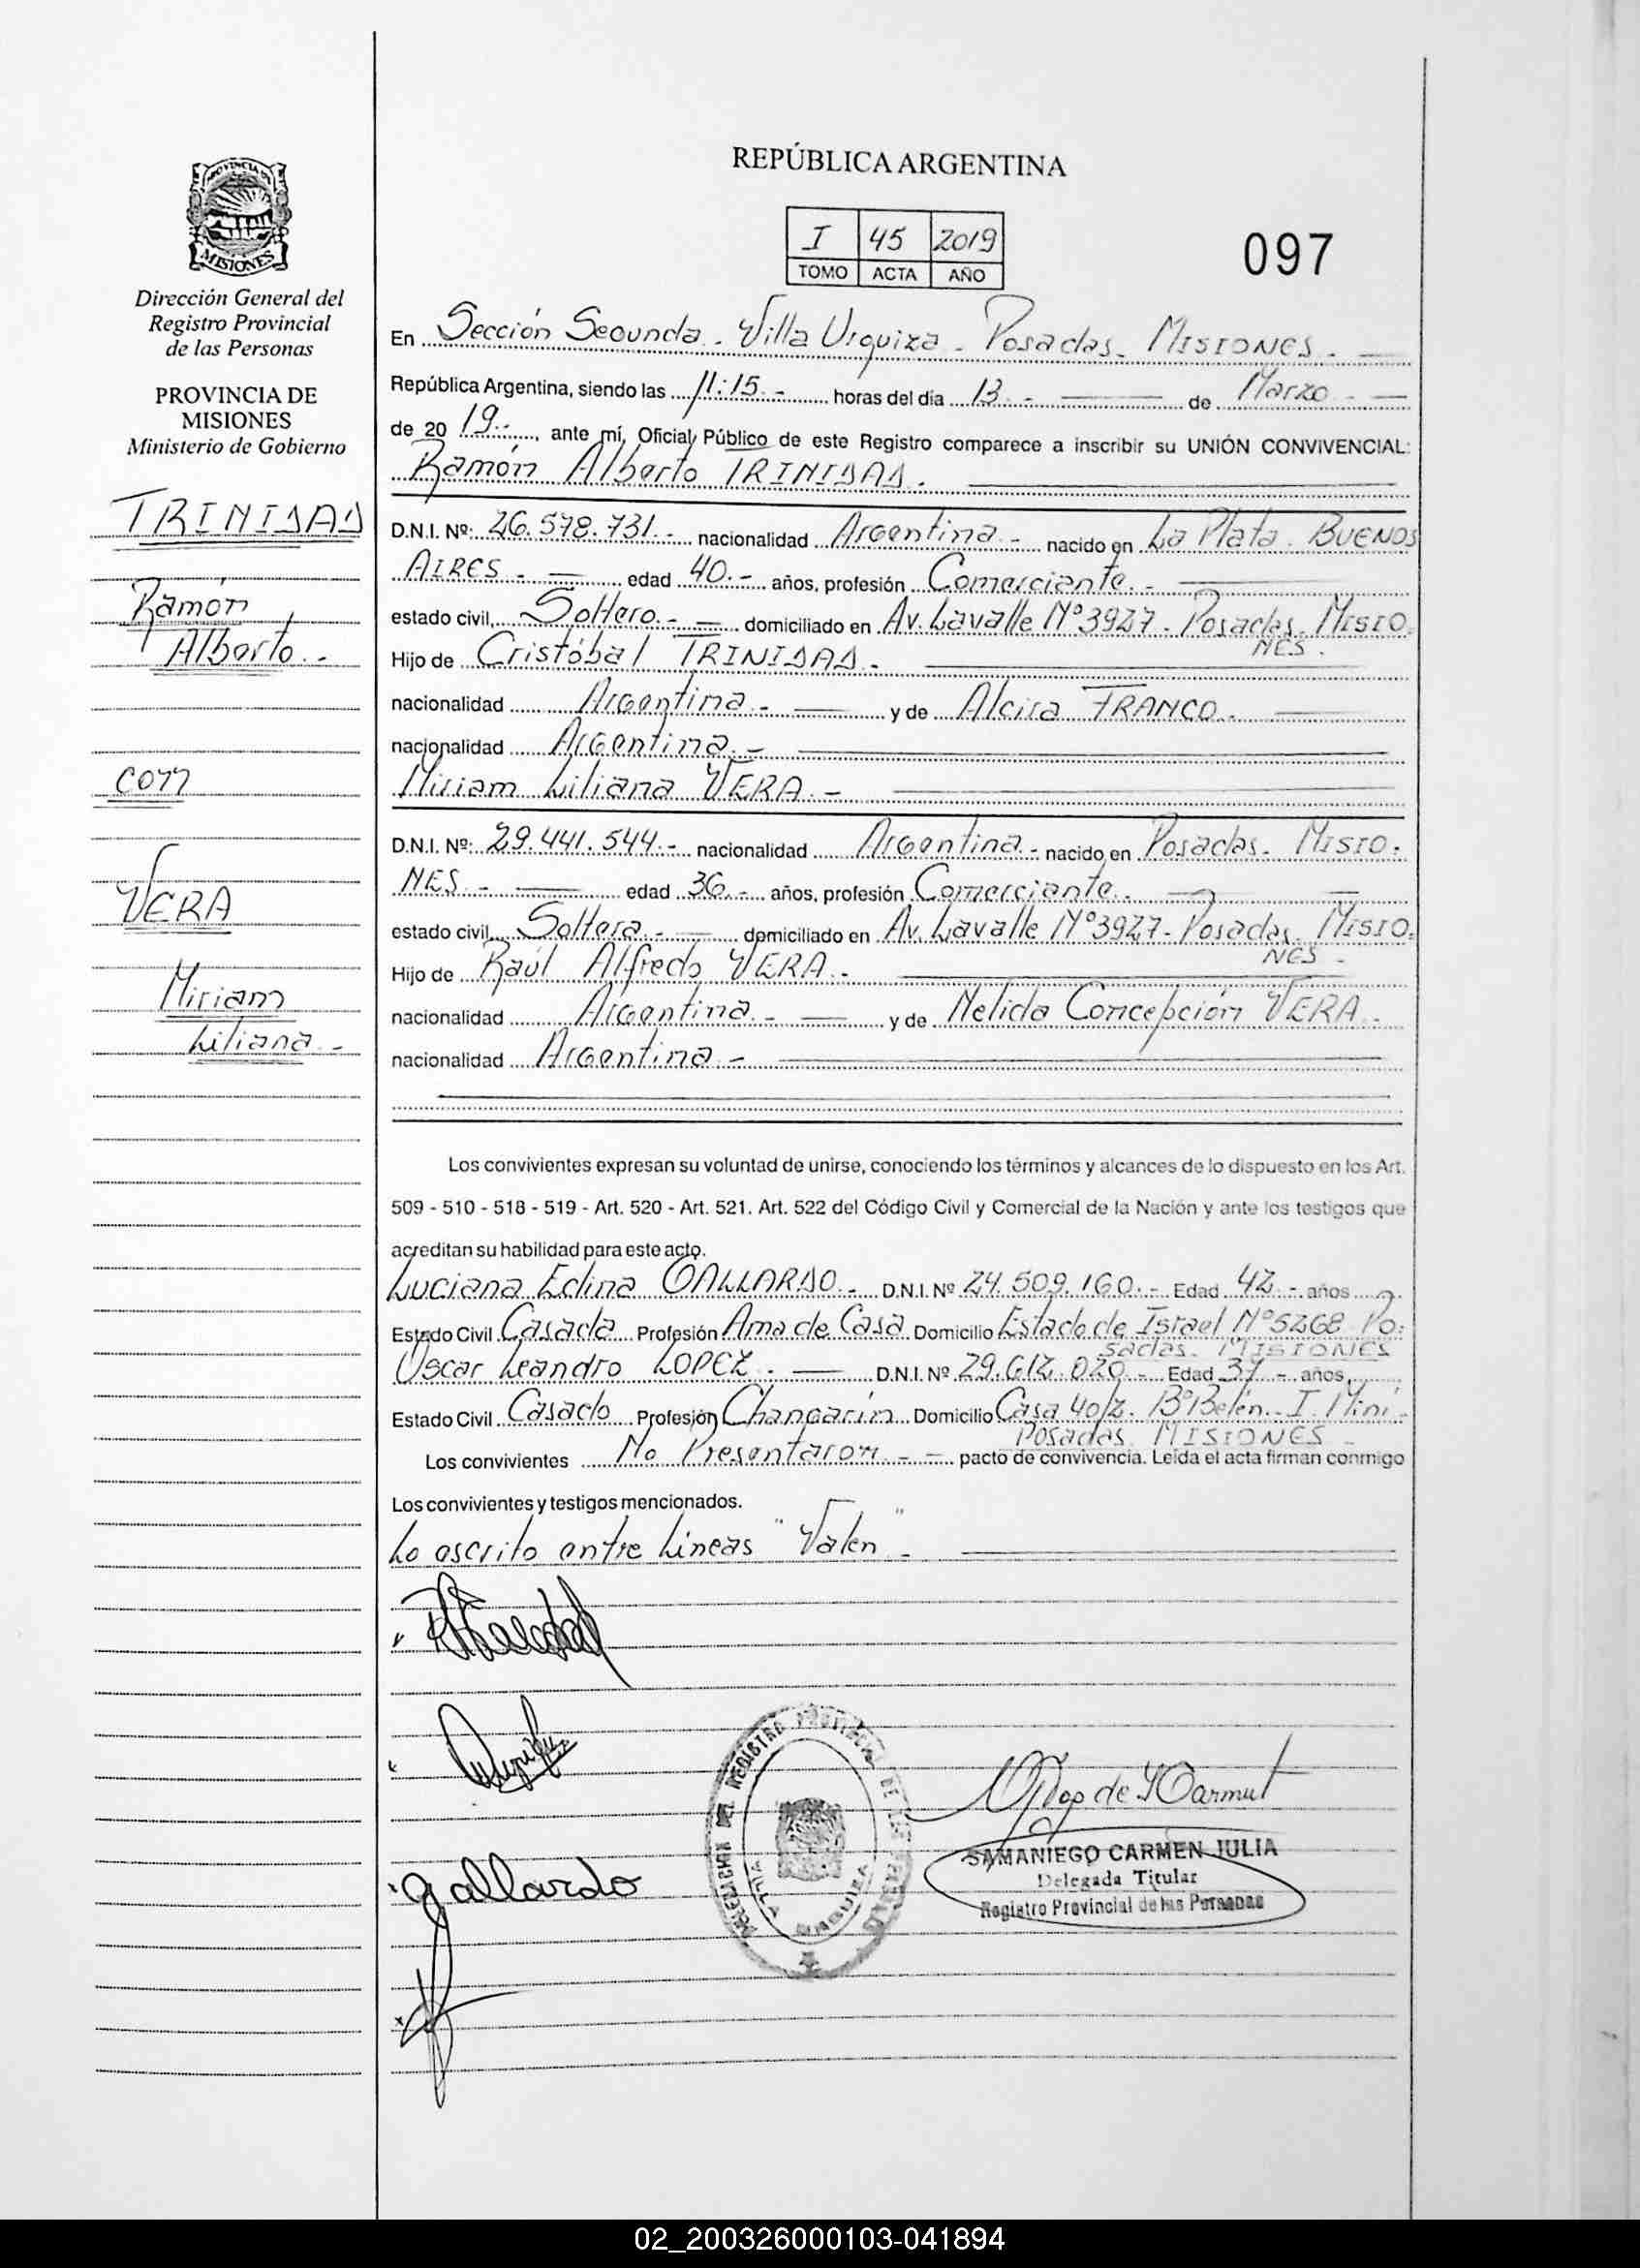 REPÚBLICA ARGENTINA
I 45 2019
TOMO ACTA AÑO
097
PROVINCIA DE
MISIONES
Dirección General del
Registro Provincial
de las Personas
PROVINCIA DE
MISIONES
Ministerio de Gobierno
TRINIDAD
Ramón
Alberto.-
con
VERA
Miriam
Liliana.-
En Sección Segunda. Villa Urquiza - Posadas. MISIONES.-
República Argentina, siendo las 11:15.- horas del día 13.- de Marzo.-
de 2019.-, ante mí, Oficial Público de este Registro comparece a inscribir su UNIÓN CONVIVENCIAL:
Ramón Alberto TRINIDAD.
D.N.I. Nº: 26.578.731.- nacionalidad Argentina.- nacido en La Plata. BUENOS
AIRES.- edad 40.- años, profesión Comerciante.-
estado civil, Soltero.- domiciliado en Av. Lavalle Nº 3927- Posadas. MISIO.
NES.
Hijo de Cristóbal TRINIDAD.
nacionalidad Argentina.- y de Alcira FRANCO.
nacionalidad Argentina.-
Miriam Liliana VERA.-
D.N.I. Nº: 29.441.544.- nacionalidad Argentina.- nacido en Posadas. MISIO.
NES.- edad 36.- años, profesión Comerciante.
estado civil, Soltera.- domiciliado en Av. Lavalle Nº 3927- Posadas. MISIO.
NES-
Hijo de Raúl Alfredo VERA.-
nacionalidad Argentina.- y de Nelida Concepción VERA.
nacionalidad Argentina.-
Los convivientes expresan su voluntad de unirse, conociendo los términos y alcances de lo dispuesto en los Art.
509 - 510 - 518 - 519 - Art. 520 - Art. 521. Art. 522 del Código Civil y Comercial de la Nación y ante los testigos que
acreditan su habilidad para este acto.
Luciana Edina GALLARDO.- D.N.I. Nº 24.509.160.- Edad 42.- años
Estado Civil Casada Profesión Ama de Casa Domicilio Estado de Israel Nº 5268 Po:
sadas. MISIONES
Oscar Leandro LOPEZ.- D.N.I. Nº 29.612.020.- Edad 37.- años,
Estado Civil Casado Profesión Changarín Domicilio Casa 40/2. Bº Belén. I. Miní.
Posadas. MISIONES-
Los convivientes No Presentaron.- pacto de convivencia. Leída el acta firman conmigo
Los convivientes y testigos mencionados.
Lo escrito entre Líneas "Valen".
gallardo
DELEGACION DEL REGISTRO PROVINCIAL DE LAS PERSONAS
VILLA URQUIZA
SAMANIEGO CARMEN JULIA
Delegada Titular
Registro Provincial de las Personas
02_200326000103-041894